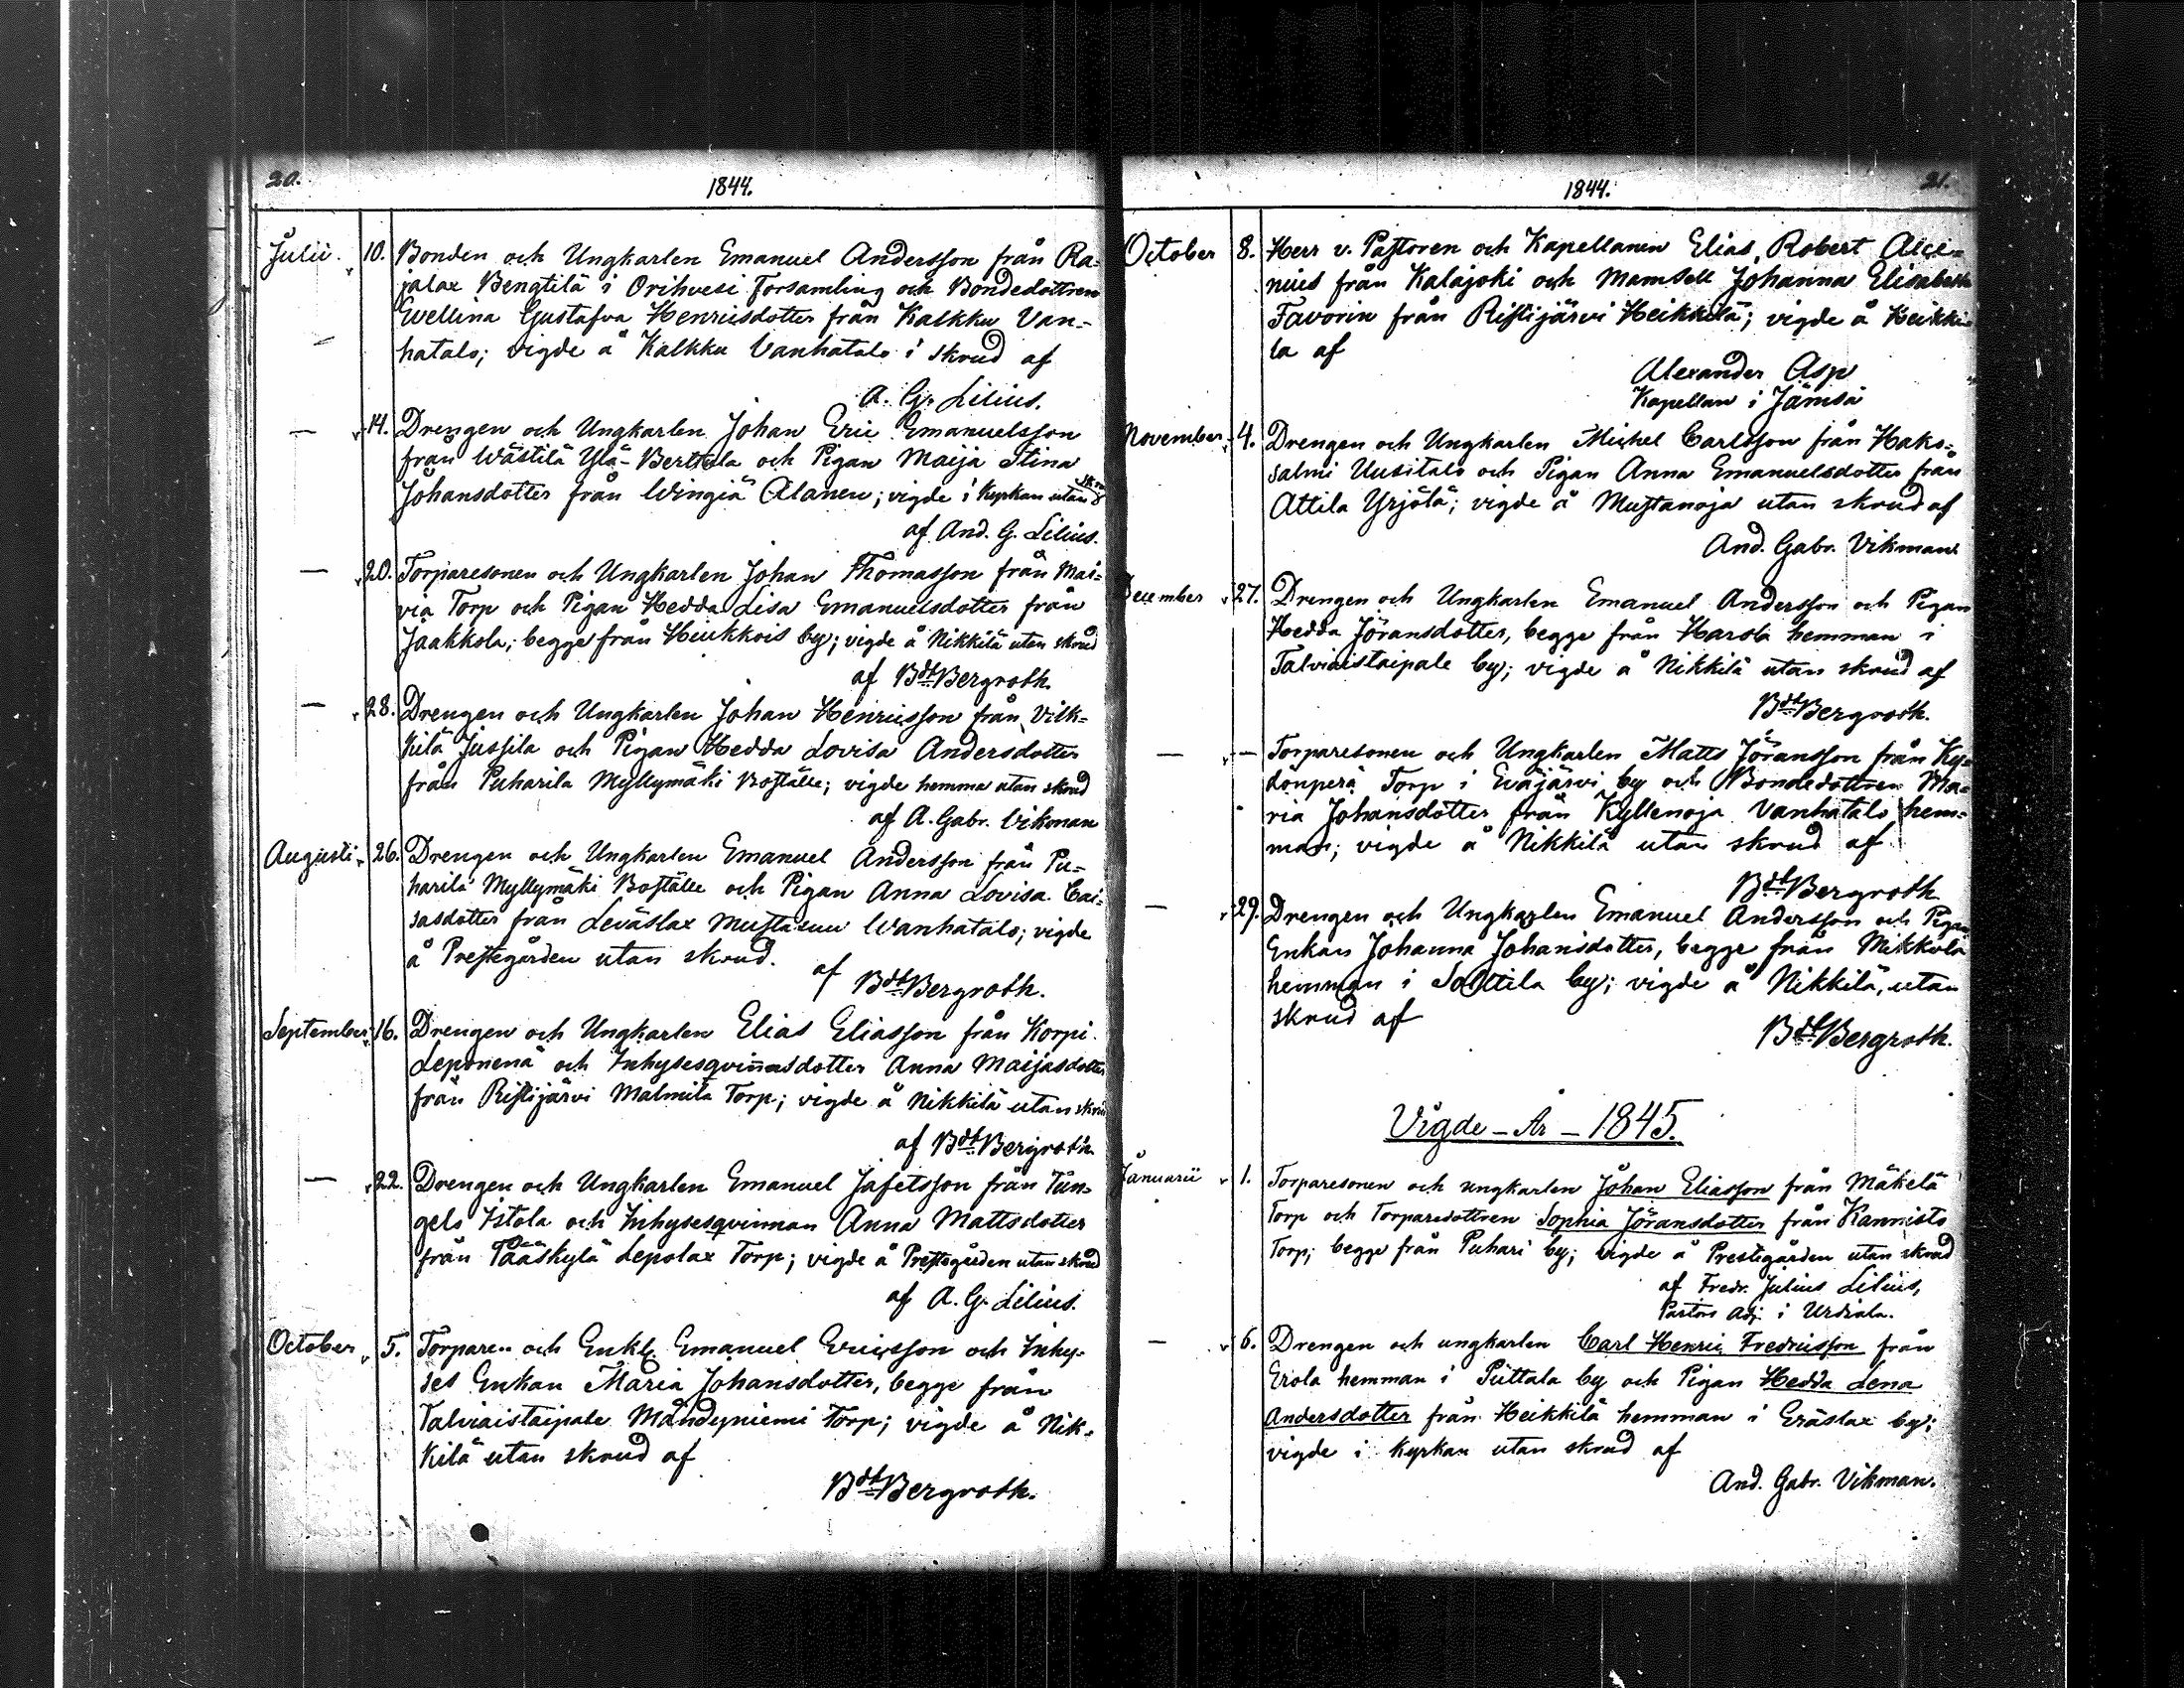 20.
1844.
Julii. 10. Bonden och Ungkarlen Emanuel Andersson från Ra-
jalax Bengtilä i Orihvesi Församling och Bondedottren
Evellina Gustafva Henricsdotter från Kalkku Van-
hatalo; vigde å Kalkku Vanhatalo i skrud af
A. G. Lilius.
— 14. Drengen och Ungkarlen Johan Eric Emanuelsson
från Wästilä Ylä-Berttula och Pigan Maija Stina
Johansdotter från Wingiä Alanen; vigde i Kyrkan utan skrud
af And. G. Lilius.
— 20. Torparesonen och Ungkarlen Johan Thomasson från Mai-
via Torp och Pigan Hedda Lisa Emanuelsdotter från
Jaakkola; begge från Heukkois by; vigde å Nikkilä utan skrud
af Bdt Bergroth.
— 28. Drengen och Ungkarlen Johan Henricsson från Vilk-
kilä Jussila och Pigan Hedda Lovisa Andersdotter
från Puharila Myllymäki Boställe; vigde hemma utan skrud
af A. Gabr. Vikman
Augusti 26. Drengen och Ungkarlen Emanuel Andersson från Pu-
harila Myllymäki Boställe och Pigan Anna Lovisa Cai-
sasdotter från Leväslax Mustasuu Wanhatalo; vigde
å Prestegården utan skrud.
af Bdt Bergroth.
September 16. Drengen och Ungkarlen Elias Eliasson från Korpi
Leponenä och Inhysesqvinnasdotter Anna Maijasdotter
från Ristijärvi Malmila Torp; vigde å Nikkilä utan skrud
af Bdt Bergroth.
— 22. Drengen och Ungkarlen Emanuel Jafetsson från Tun-
gelo Istola och Inhysesqvinnan Anna Mattsdotter
från Pääskylä Lepolax Torp; vigde å Prestegården utan skrud
af A. G. Lilius.
October 5. Torparen och Enkl. Emanuel Ericsson och Inhy-
ses Enkan Maria Johansdotter, begge från
Talviaistaipale Mändyniemi Torp; vigde å Nik-
kilä utan skrud af
Bdt Bergroth.
1844.
21.
October 8. Herr v. Pastoren och Kapellanen Elias Robert Alce-
nius från Kalajoki och Mamsell Johanna Elisabeth
Favorin från Ristijärvi Heikkilä; vigde å Heikki-
la af
Alexander Asp
Kapellan i Jämsä
November 4. Drengen och Ungkarlen Michel Carlsson från Hako-
salmi Uusitalo och Pigan Anna Emanuelsdotter från
Attila Yrjölä; vigde å Mustanoja utan skrud af
And. Gabr. Vikman
December 27. Drengen och Ungkarlen Emanuel Andersson och Pigan
Hedda Jöransdotter, begge från Harola hemman i
Talviaistaipale by; vigde å Nikkilä utan skrud af
Bdt Bergroth.
— — Torparesonen och Ungkarlen Matts Jöransson från Ky-
dönperä Torp i Eväjärvi by och Bondedottren Ma-
ria Johansdotter från Kyllenoja Vanhatalo hem-
man; vigde å Nikkilä utan skrud af
Bdt Bergroth
— 29. Drengen och Ungkarlen Emanuel Andersson och Pigan
Enkan Johanna Johansdotter, begge från Mikkola
hemman i Solttila by; vigde å Nikkilä, utan
skrud af
Bdt Bergroth.
Vigde - År - 1845.
Januarii 1. Torparesonen och ungkarlen Johan Eliasson från Mäkelä
Torp och Torparedottren Sophia Jöransdotter från Kannisto
Torp; begge från Puhari by; vigde å Prestegården utan skrud
af Fredr. Julius Lilius,
Pastors Adj. i Urdiala.
— 6. Drengen och ungkarlen Carl Henric Fredricsson från
Erola hemman i Puttala by och Pigan Hedda Lena
Andersdotter från Heikkilä hemman i Eräslax by;
vigde i kyrkan utan skrud af
And. Gabr. Vikman.